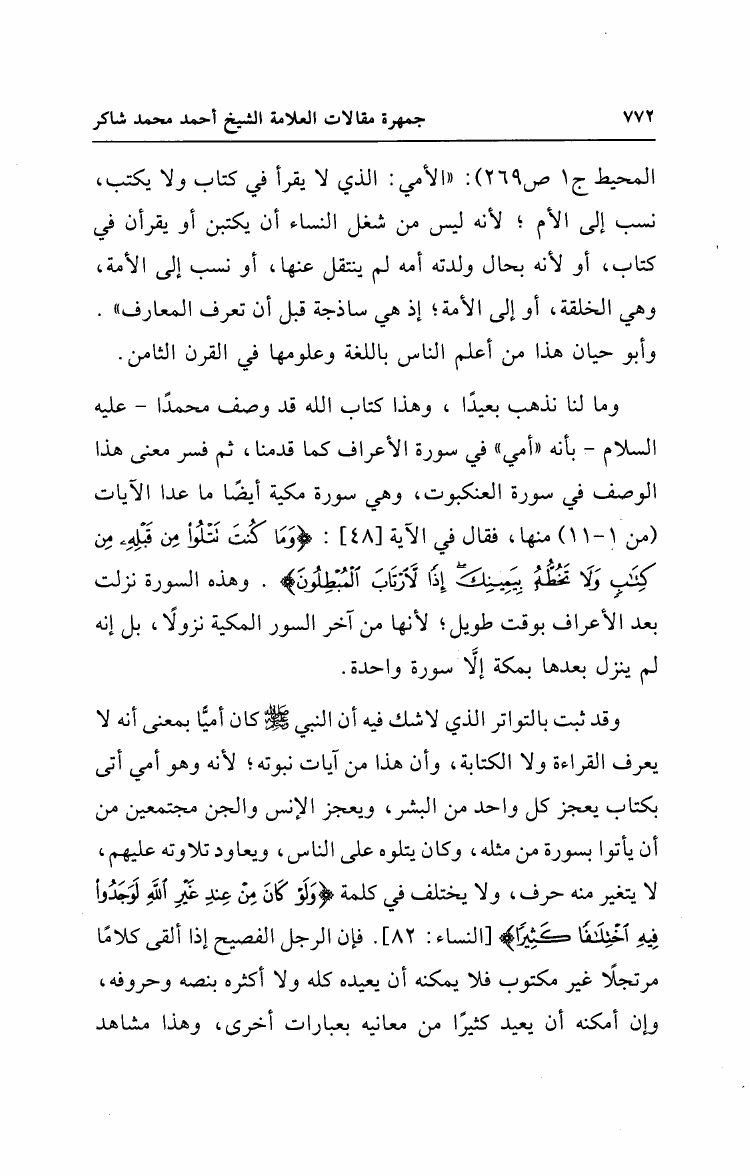 ٧٧٢ جمهرة مقالات العلامة الشيخ أحمد محمد شاكر
المحيط ج١ ص٢٦٩): «الأمي: الذي لا يقرأ في كتاب ولا يكتب،
نسب إلى الأم ؛ لأنه ليس من شغل النساء أن يكتبن أو يقرأن في
كتاب، أو لأنه بحال ولدته أمه لم ينتقل عنها، أو نسب إلى الأمة،
وهي الخلقة، أو إلى الأمة؛ إذ هي ساذجة قبل أن تعرف المعارف» .
وأبو حيان هذا من أعلم الناس باللغة وعلومها في القرن الثامن.
وما لنا نذهب بعيدًا ، وهذا كتاب الله قد وصف محمدًا – عليه
السلام – بأنه «أمي» في سورة الأعراف كما قدمنا، ثم فسر معنى هذا
الوصف في سورة العنكبوت، وهي سورة مكية أيضًا ما عدا الآيات
(من ١-١١) منها، فقال في الآية [٤٨] : ﴿وَمَا كُنتَ تَتْلُوا۟ مِن قَبْلِهِۦ مِن
كِتَـٰبٍ وَلَا تَخُطُّهُۥ بِيَمِينِكَ ۖ إِذًا لَّٱرْتَابَ ٱلْمُبْطِلُونَ﴾ . وهذه السورة نزلت
بعد الأعراف بوقت طويل؛ لأنها من آخر السور المكية نزولًا، بل إنه
لم ينزل بعدها بمكة إلَّا سورة واحدة.
وقد ثبت بالتواتر الذي لاشك فيه أن النبي ﷺ كان أميًّا بمعنى أنه لا
يعرف القراءة ولا الكتابة، وأن هذا من آيات نبوته؛ لأنه وهو أمي أتى
بكتاب يعجز كل واحد من البشر، ويعجز الإنس والجن مجتمعين من
أن يأتوا بسورة من مثله، وكان يتلوه على الناس، ويعاود تلاوته عليهم،
لا يتغير منه حرف، ولا يختلف في كلمة ﴿وَلَوْ كَانَ مِنْ عِندِ غَيْرِ ٱللَّهِ لَوَجَدُوا۟
فِيهِ ٱخْتِلَـٰفًا كَثِيرًا﴾ [النساء: ٨٢]. فإن الرجل الفصيح إذا ألقى كلامًا
مرتجلًا غير مكتوب فلا يمكنه أن يعيده كله ولا أكثره بنصه وحروفه،
وإن أمكنه أن يعيد كثيرًا من معانيه بعبارات أخرى، وهذا مشاهد